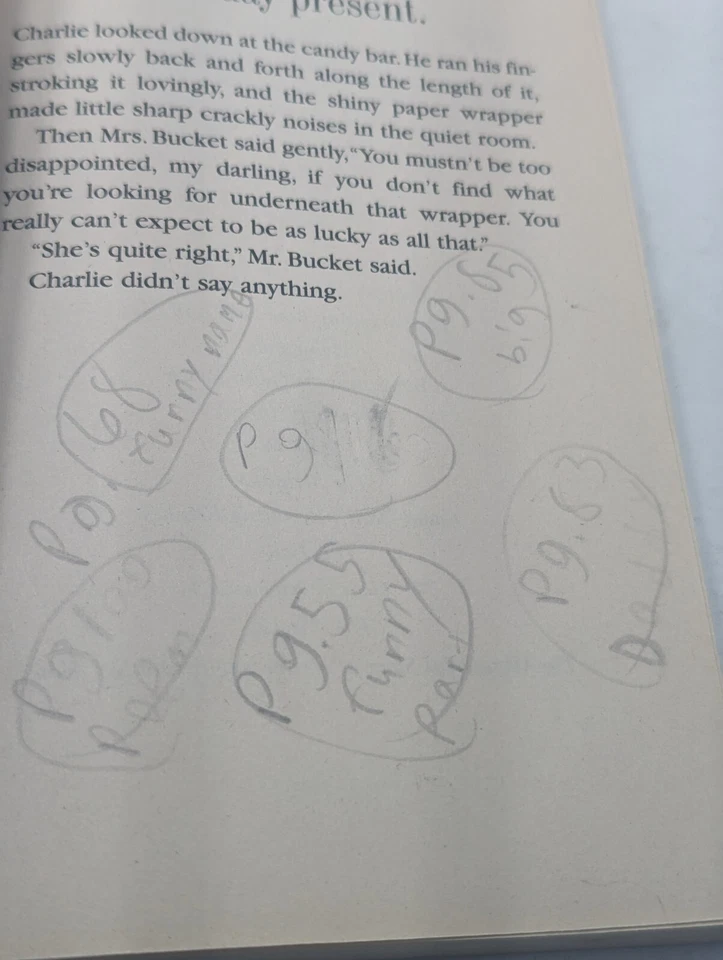 present.
Charlie looked down at the candy bar. He ran his fin-
gers slowly back and forth along the length of it,
stroking it lovingly, and the shiny paper wrapper
made little sharp crackly noises in the quiet room.
Then Mrs. Bucket said gently, “You mustn't be too
disappointed, my darling, if you don't find what
you're looking for underneath that wrapper. You
really can't expect to be as lucky as all that.”
“She's quite right,” Mr. Bucket said.
Charlie didn't say anything.
Pg. 65
Pg. 68
funny name
Pg
Pg. 63
Pg 100
Pg. 55
funny
Part